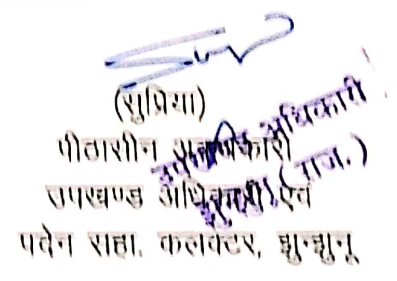 (सुप्रिया)
पीठासीन अधिकारी
उपखण्ड अधिकारी एवं
पदेन सहा. कलक्टर, झुन्झुनू
उपखण्ड अधिकारी
(राज.)